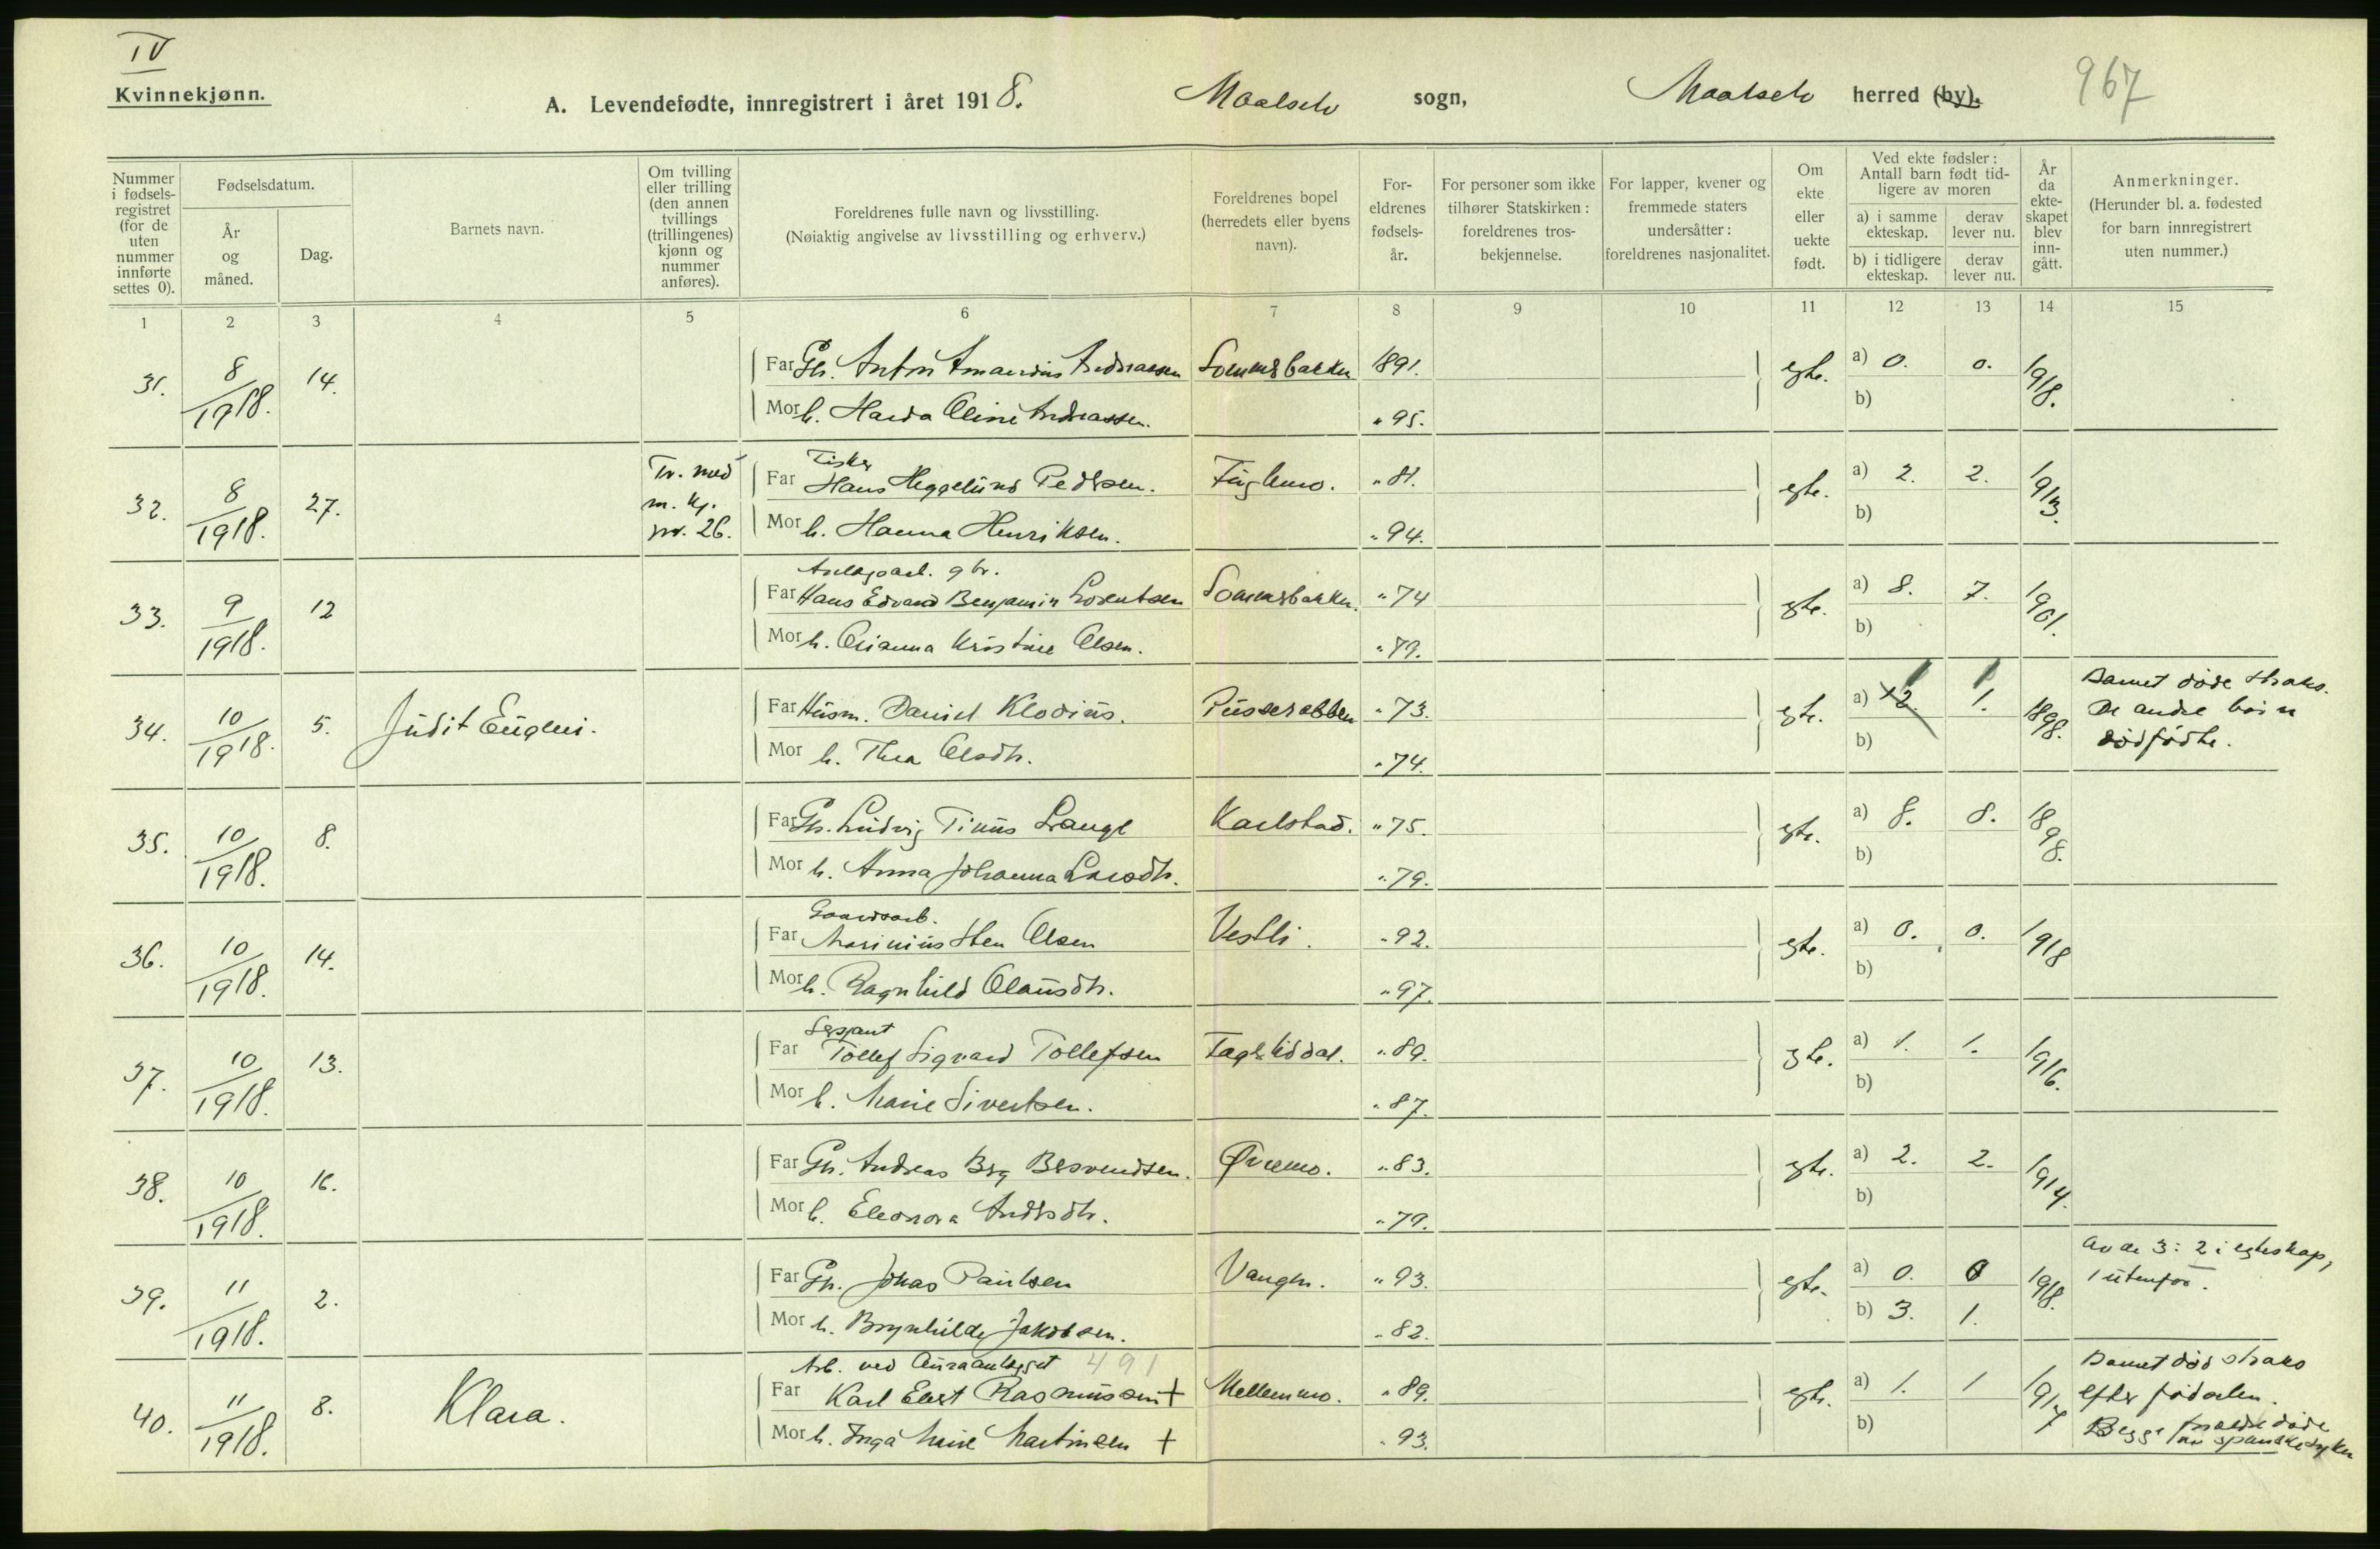 IV
Kvinnekjønn.
A. Levendefødte, innregistrert i året 1918. Maalselv sogn, Maalselv herred (by). 967
Nummer i fødsels-registret (for de uten nummer innførte settes 0).
Fødselsdatum.
År og måned.
Dag.
Barnets navn.
Om tvilling eller trilling (den annen tvillings (trillingenes) kjønn og nummer anføres).
Foreldrenes fulle navn og livsstilling.
(Nøiaktig angivelse av livsstilling og erhverv.)
Foreldrenes bopel (herredets eller byens navn).
For-eldrenes fødsels-år.
For personer som ikke tilhører Statskirken: foreldrenes tros-bekjennelse.
For lapper, kvener og fremmede staters undersåtter: foreldrenes nasjonalitet.
Om ekte eller uekte født.
Ved ekte fødsler: Antall barn født tid-ligere av moren
a) i samme ekteskap. derav lever nu.
b) i tidligere ekteskap. derav lever nu.
År da ekte-skapet blev inn-gått.
Anmerkninger.
(Herunder bl. a. fødested for barn innregistrert uten nummer.)
1 2 3 4 5 6 7 8 9 10 11 12 13 14 15
31. 8/1918. 14. Far Gbr. Anton Amandus Andreassen 1891. egte. a) 0. 0. 1918.
Mor h. Harda Oline Andreassen. " 95. b)
32. 8/1918. 27. Tv. med m. kj. nr. 26. Fisker
Far Hans Heggelund Pedersen. Fuglemo. " 81. egte. a) 2. 2. 1913.
Mor h. Hanna Henriksen. " 94. b)
33. 9/1918. 12 Anlægsarb. gbr.
Far Hans Edvard Benjamin Lorentsen " 74 egte. a) 8. 7. 1901.
Mor h. Kristine Olsen. " 79. b)
34. 10/1918. 5. Judit Eugeni. Far Husm. Daniel Klodius. " 73. egte. a) 1. 1898. Barnet døde straks.
De andre barn
dødfødte.
Mor h. Thea Olsdtr. " 74. b)
35. 10/1918. 8. Far Gbr. Ludvig Tinus Lange Karlstad. " 75. egte. a) 8. 8. 1898.
Mor h. Anna Johanna Larsdtr. " 79. b)
36. 10/1918. 14. Gaardsarb.
Far Marinius Sten Olsen Vestli. " 92. egte. a) 0. 0. 1918
Mor h. Ragnhild Olausdtr. " 97. b)
37. 10/1918. 13. Sersjant
Far Tollef Sigvard Tollefsen Fagerliddal. " 89. egte. a) 1. 1. 1916.
Mor h. Marie Sivertsen. " 87. b)
38. 10/1918. 16. Far Gbr. Andreas Berg Øvremo. " 83. egte. a) 2. 2. 1914.
Mor h. Eleonora Andersdtr. " 79. b)
39. 11/1918. 2. Far Gbr. Johas Paulsen Vangen. " 93. egte. a) 0. 0 1918. Av de 3: 2 i egteskap,
1 utenfor.
Mor h. Brynhilde Jakobsen. " 82. b) 3. 1.
40. 11/1918. 8. Klara. Arb. ved Auraanlægget 491
Far Karl Elert Rasmussen + Mellemmo. " 89. egte. a) 1. 1 1917 Barnet død straks
efter fødselen.
Begge forældre døde
av spanskesyken
Mor h. Inga Marie Martinsen + " 93. b)